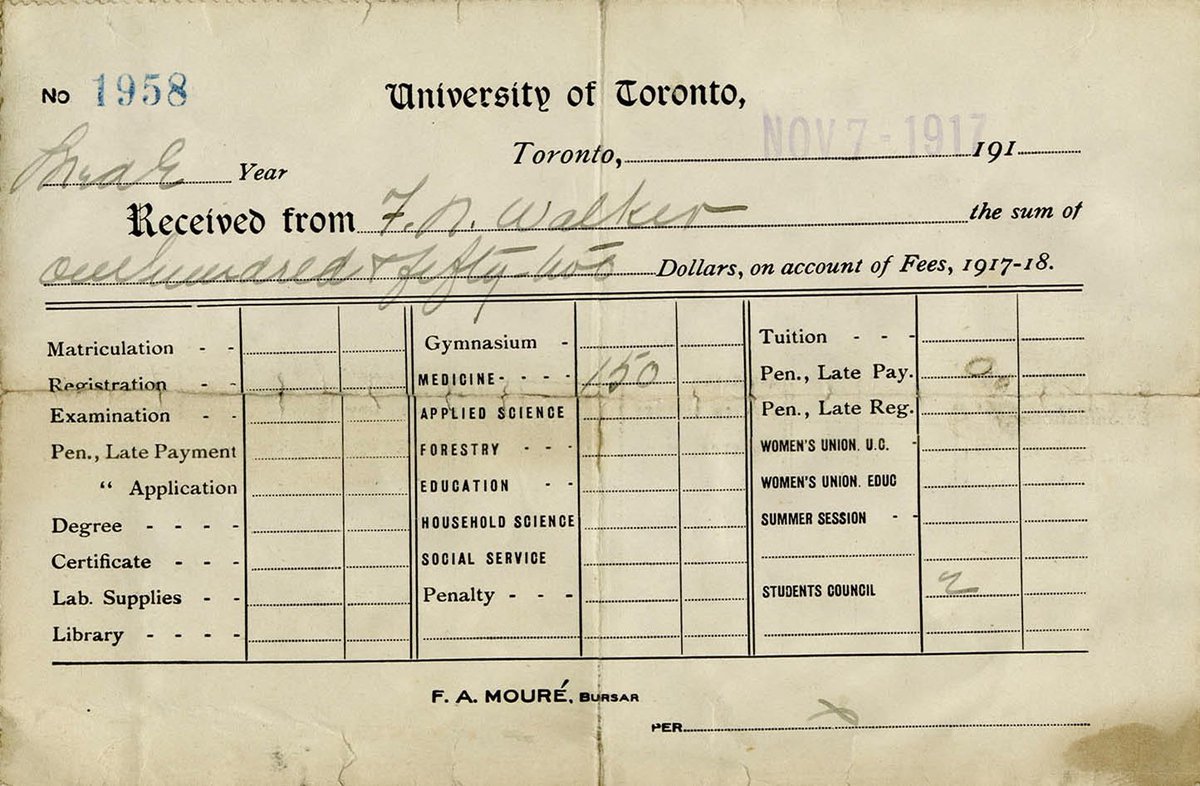 No 1958
University of Toronto,
Toronto, NOV 7 - 1917 191
Year
Received from F. N. Walker the sum of
one hundred & fifty-two Dollars, on account of Fees, 1917-18.
Matriculation - - Gymnasium - Tuition - - -
Registration - - MEDICINE - - - - 150 Pen., Late Pay.
Examination - - APPLIED SCIENCE Pen., Late Reg.
Pen., Late Payment FORESTRY - - - WOMEN'S UNION. U.C. -
“ Application EDUCATION - - WOMEN'S UNION. EDUC
Degree - - - - HOUSEHOLD SCIENCE SUMMER SESSION - -
Certificate - - - SOCIAL SERVICE
Lab. Supplies - - Penalty - - - STUDENTS COUNCIL 2
Library - - - -
F. A. MOURÉ, BURSAR
PER